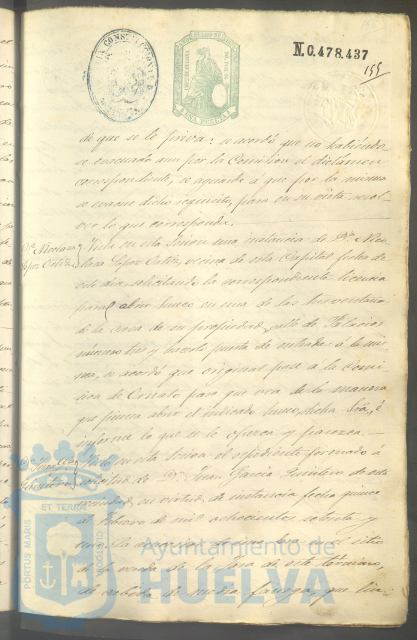 N.0.478.437
155
UNA PESETA
de que se le priva; se acordó que no habiéndo
se evacuado aun por la Comision el dictámen
correspondiente, se aguarde á que por la misma
se evacue dicho requisito, para en su vista resol-
ver lo que corresponda.
Dª Nicolasa Vista en esta sesion una instancia de Dª Nico-
Lopez Ortiz. lasa Lopez Ortiz, vecina de esta Capital fecha de
este dia solicitando la correspondiente licencia
para abrir hueco en una de las dos ventanas
de la casa de su propiedad, calle de Palacios
número tres y ponerle puerta de entrada á la mis-
ma, se acordó que original pase á la Comi-
sion de Ornato para que vea de la manera
que piensa abrir el indicado hueco dicha Sra. é
informe lo que se le ofrezca y parezca.
Visto en esta sesion el espediente formado á
solicitud de D. Juan García Quintero de esta
vecindad, en virtud de instancia fecha quince
de Febrero de mil ochocientos setenta y
el sitio
de este término,
de cabida de media fanega, que lin-
PORTUS MARIS
ET TERRAE
CUSTODIO
Ayuntamiento de
HUELVA